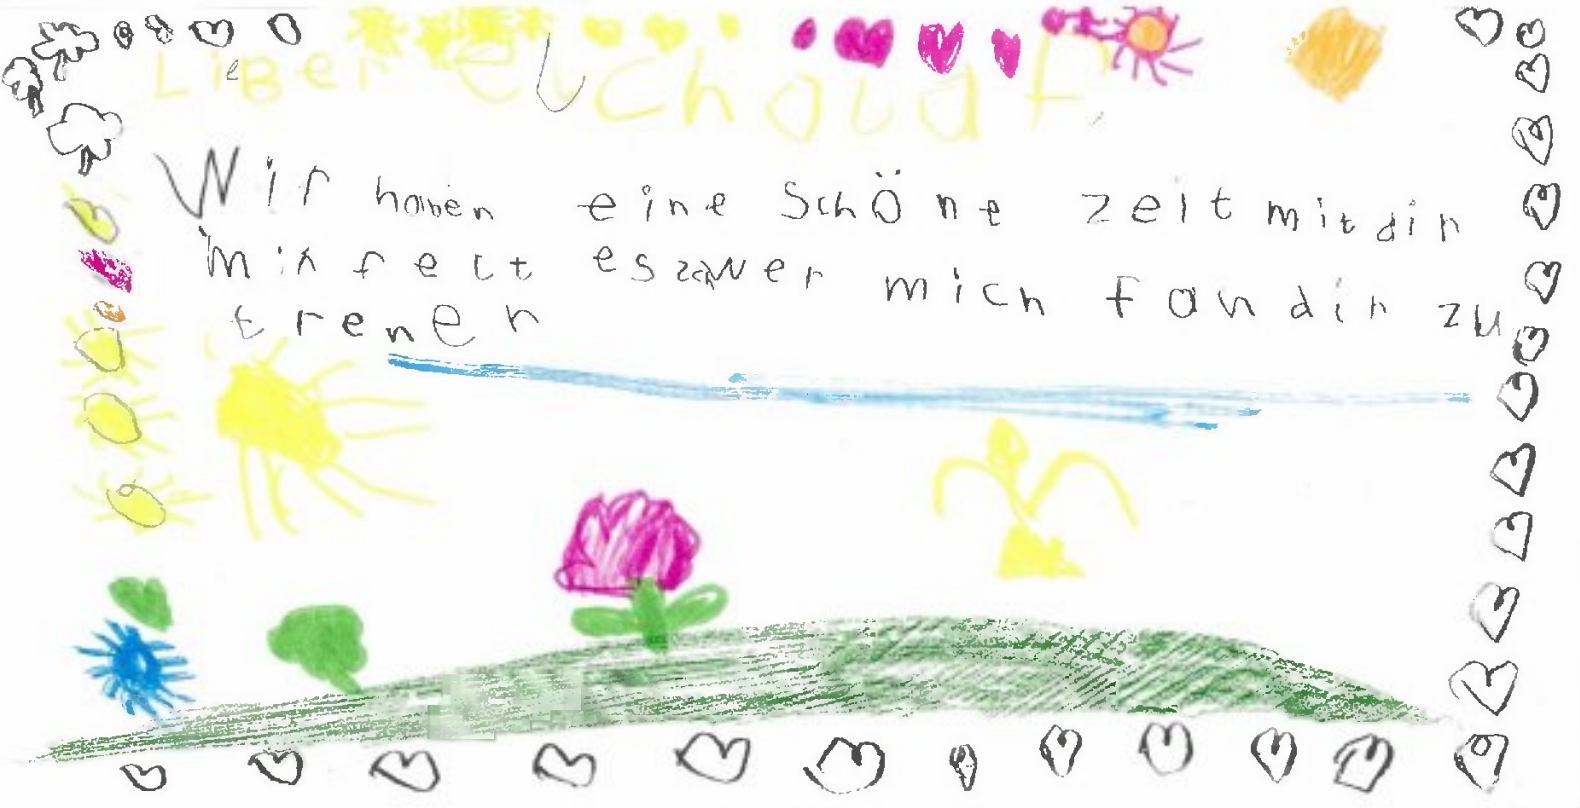 LieBer elChouaf
Wir haben eine Schöne zeit mit dir
mir felt es schwer mich fan dir zu
trenen